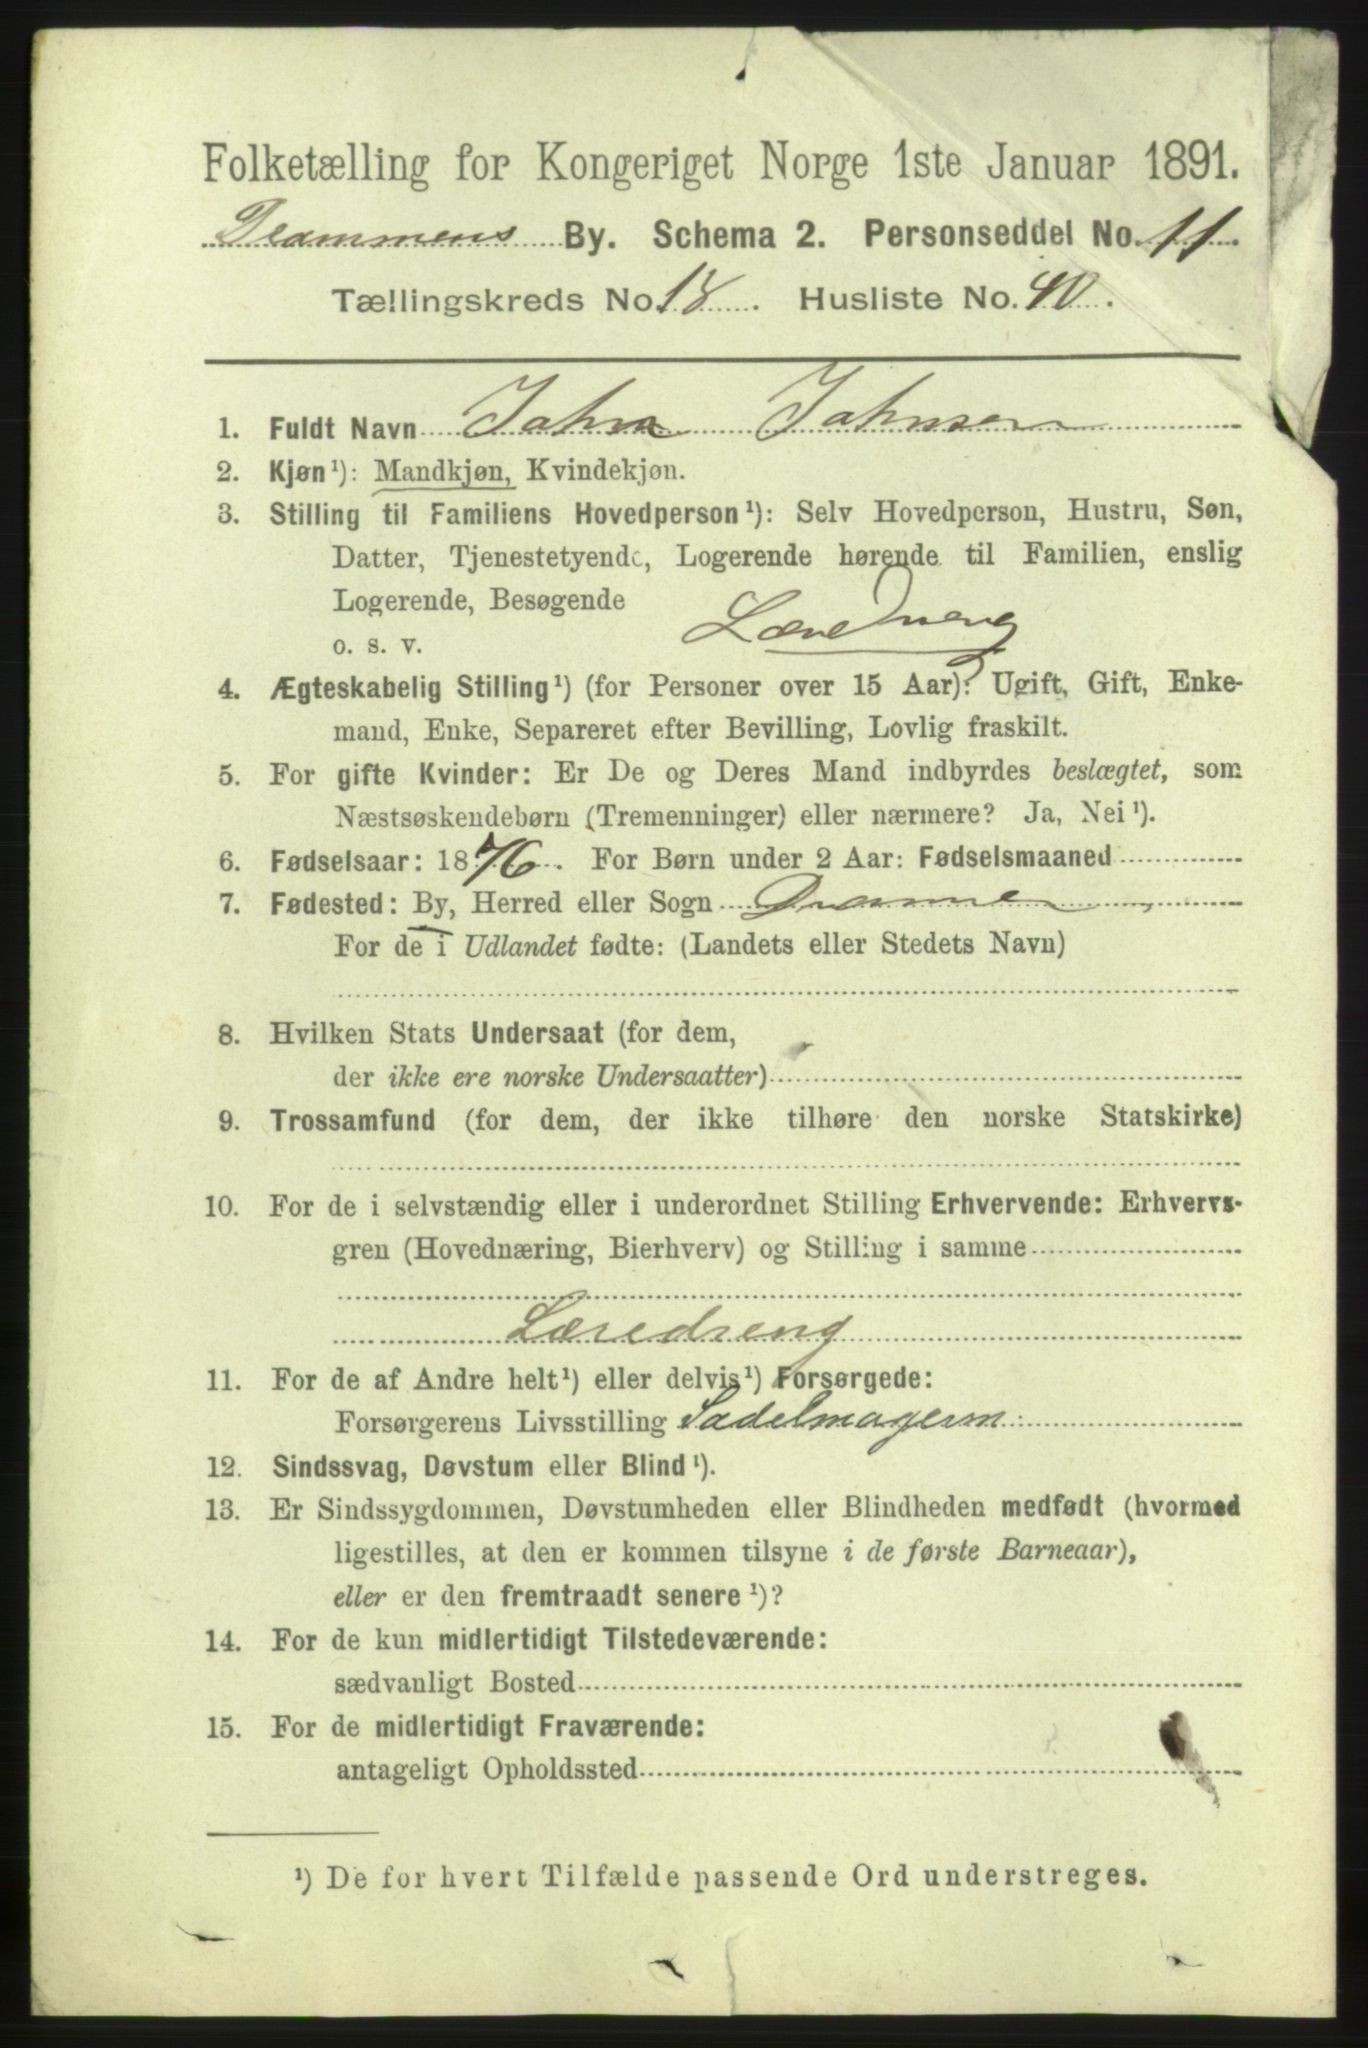 Folketælling for Kongeriget Norge 1ste Januar 1891.
Drammens By. Schema 2. Personseddel No. 11.
Tællingskreds No. 18. Husliste No. 40.
1. Fuldt Navn John Johnsen
2. Kjøn ¹): Mandkjøn, Kvindekjøn.
3. Stilling til Familiens Hovedperson ¹): Selv Hovedperson, Hustru, Søn,
Datter, Tjenestetyende, Logerende hørende til Familien, enslig
Logerende, Besøgende
o. s. v. Læredreng
4. Ægteskabelig Stilling ¹) (for Personer over 15 Aar): Ugift, Gift, Enke-
mand, Enke, Separeret efter Bevilling, Lovlig fraskilt.
5. For gifte Kvinder: Er De og Deres Mand indbyrdes beslægtet, som
Næstsøskendebørn (Tremenninger) eller nærmere? Ja, Nei ¹).
6. Fødselsaar: 1876. For Børn under 2 Aar: Fødselsmaaned
7. Fødested: By, Herred eller Sogn Drammen
For de i Udlandet fødte: (Landets eller Stedets Navn)
8. Hvilken Stats Undersaat (for dem,
der ikke ere norske Undersaatter)
9. Trossamfund (for dem, der ikke tilhøre den norske Statskirke)
10. For de i selvstændig eller i underordnet Stilling Erhvervende: Erhvervs-
gren (Hovednæring, Bierhverv) og Stilling i samme
Læredreng
11. For de af Andre helt ¹) eller delvis ¹) Forsørgede:
Forsørgerens Livsstilling Sadelmagerm:
12. Sindssvag, Døvstum eller Blind ¹).
13. Er Sindssygdommen, Døvstumheden eller Blindheden medfødt (hvormed
ligestilles, at den er kommen tilsyne i de første Barneaar),
eller er den fremtraadt senere ¹)?
14. For de kun midlertidigt Tilstedeværende:
sædvanligt Bosted
15. For de midlertidigt Fraværende:
antageligt Opholdssted
¹) De for hvert Tilfælde passende Ord understreges.